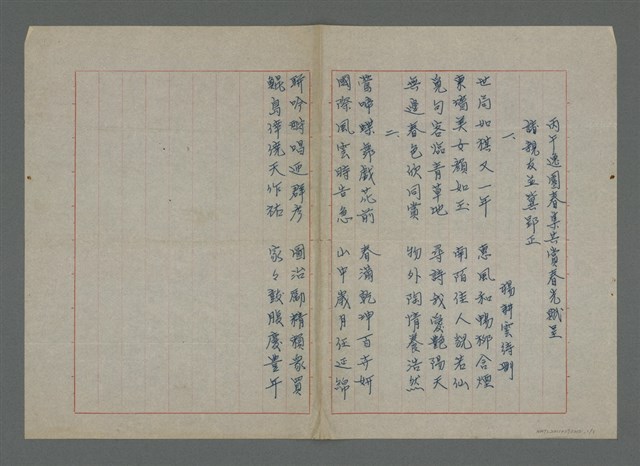 丙午逸園春集共賞春光賦呈
諸親友並冀郢正
楊新雲待刪
一、
世局如棋又一年 惠風和暢柳含煙
東牆美女顏如玉 南陌佳人貌若仙
覓句客臨青草地 尋詩我愛艷陽天
無邊春色欣同賞 物外陶情養浩然
二、
鶯啼蝶舞戲花前 春滿乾坤百卉妍
國際風雲時告急 山中歲月任延綿
聯吟 唱迎群彥 圖治勵精賴眾賢
鯤島 天作祜 家々鼓腹慶豐年